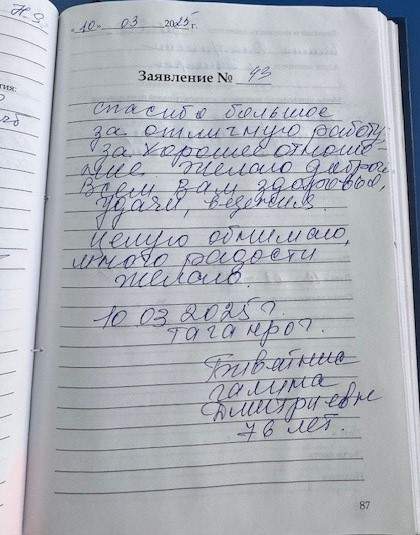 Н.Я.
"10" 03 2025 г.
Заявление № 43
спасибо большое
за отличную работу
за хорошее отноше-
ние. Желаю добра.
Всем вам здоровья,
удачи, везения.
Целую обнимаю,
много радости
желаю.
10 03 2025 г.
Таганрог.
Галина
Дмитриевн
76 лет.
87